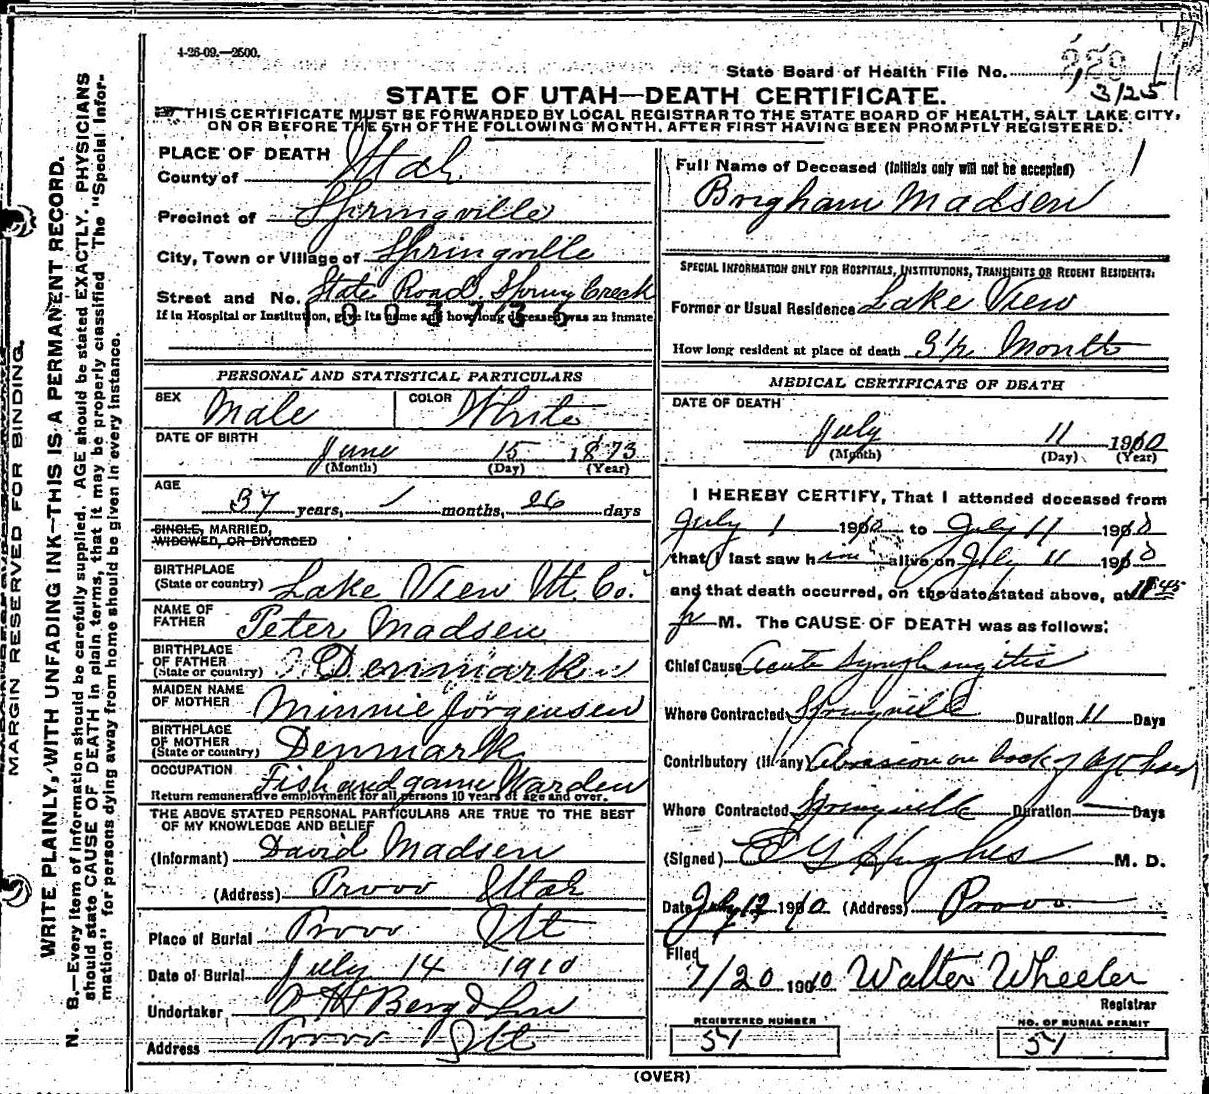 4-26-09.—2500.
State Board of Health File No.
3/25
STATE OF UTAH—DEATH CERTIFICATE.
THIS CERTIFICATE MUST BE FORWARDED BY LOCAL REGISTRAR TO THE STATE BOARD OF HEALTH, SALT LAKE CITY,
ON OR BEFORE THE 5TH OF THE FOLLOWING MONTH, AFTER FIRST HAVING BEEN PROMPTLY REGISTERED.
MARGIN RESERVED FOR BINDING.
WRITE PLAINLY, WITH UNFADING INK—THIS IS A PERMANENT RECORD.
N. B.—Every item of information should be carefully supplied. AGE should be stated EXACTLY. PHYSICIANS
should state CAUSE OF DEATH in plain terms, that it may be properly classified. The "Special Infor-
mation" for persons dying away from home should be given in every instance.
PLACE OF DEATH
County of Utah
Precinct of Springville
City, Town or Village of Springville
Street and No. State Road. Spring Creek
If in Hospital or Institution, give its name and how long deceased was an inmate
PERSONAL AND STATISTICAL PARTICULARS
SEX Male COLOR White
DATE OF BIRTH
June 15 1873
(Month) (Day) (Year)
AGE
37 years, / months, 26 days
SINGLE, MARRIED,
WIDOWED, OR DIVORCED
BIRTHPLACE
(State or country) Lake View Ut. Co.
NAME OF
FATHER Peter Madsen
BIRTHPLACE
OF FATHER
(State or country) Denmark
MAIDEN NAME
OF MOTHER Minnie Jorgensen
BIRTHPLACE
OF MOTHER
(State or country) Denmark
OCCUPATION Fish and game Warden
Return remunerative employment for all persons 10 years of age and over.
THE ABOVE STATED PERSONAL PARTICULARS ARE TRUE TO THE BEST
OF MY KNOWLEDGE AND BELIEF
(Informant) David Madsen
(Address) Provo Utah
Place of Burial Provo Ut
Date of Burial July 14 1910
Undertaker O H Berg & Son
Address Provo Ut
Full Name of Deceased (Initials only will not be accepted)
Brigham Madsen
SPECIAL INFORMATION ONLY FOR HOSPITALS, INSTITUTIONS, TRANSIENTS OR RECENT RESIDENTS:
Former or Usual Residence Lake View
How long resident at place of death 3 1/2 Months
MEDICAL CERTIFICATE OF DEATH
DATE OF DEATH
July 11 1910
(Month) (Day) (Year)
I HEREBY CERTIFY, That I attended deceased from
July 1 1910 to July 11 1910
that I last saw him alive on July 11 1910
and that death occurred, on the date stated above, at 11 45
p M. The CAUSE OF DEATH was as follows:
Chief Cause Acute Lymphangitis
Where Contracted Springville Duration 11 Days
Contributory (if any) Abrasion on back of left hand
Where Contracted Springville Duration Days
(Signed) E G Hughes M. D.
Date July 12 1910 (Address) Provo
Filed
7/20 1910 Walter Wheeler
Registrar
REGISTERED NUMBER
54
NO. OF BURIAL PERMIT
54
(OVER)